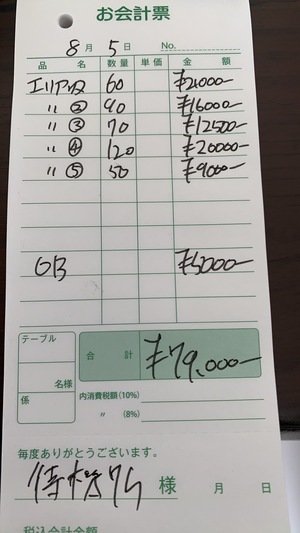 お会計票
8月 5日 No.
品名 数量 単価 金額
60 ¥21000-
〃 ② 90 ¥16000-
〃 ③ 70 ¥12500-
〃 ④ 120 ¥20000-
〃 ⑤ 50 ¥9000-
¥5000-
テーブル
合計 ¥79,000-
名様
係
内消費税額(10%)
〃 (8%)
毎度ありがとうございます。
様 月 日
税込合計金額